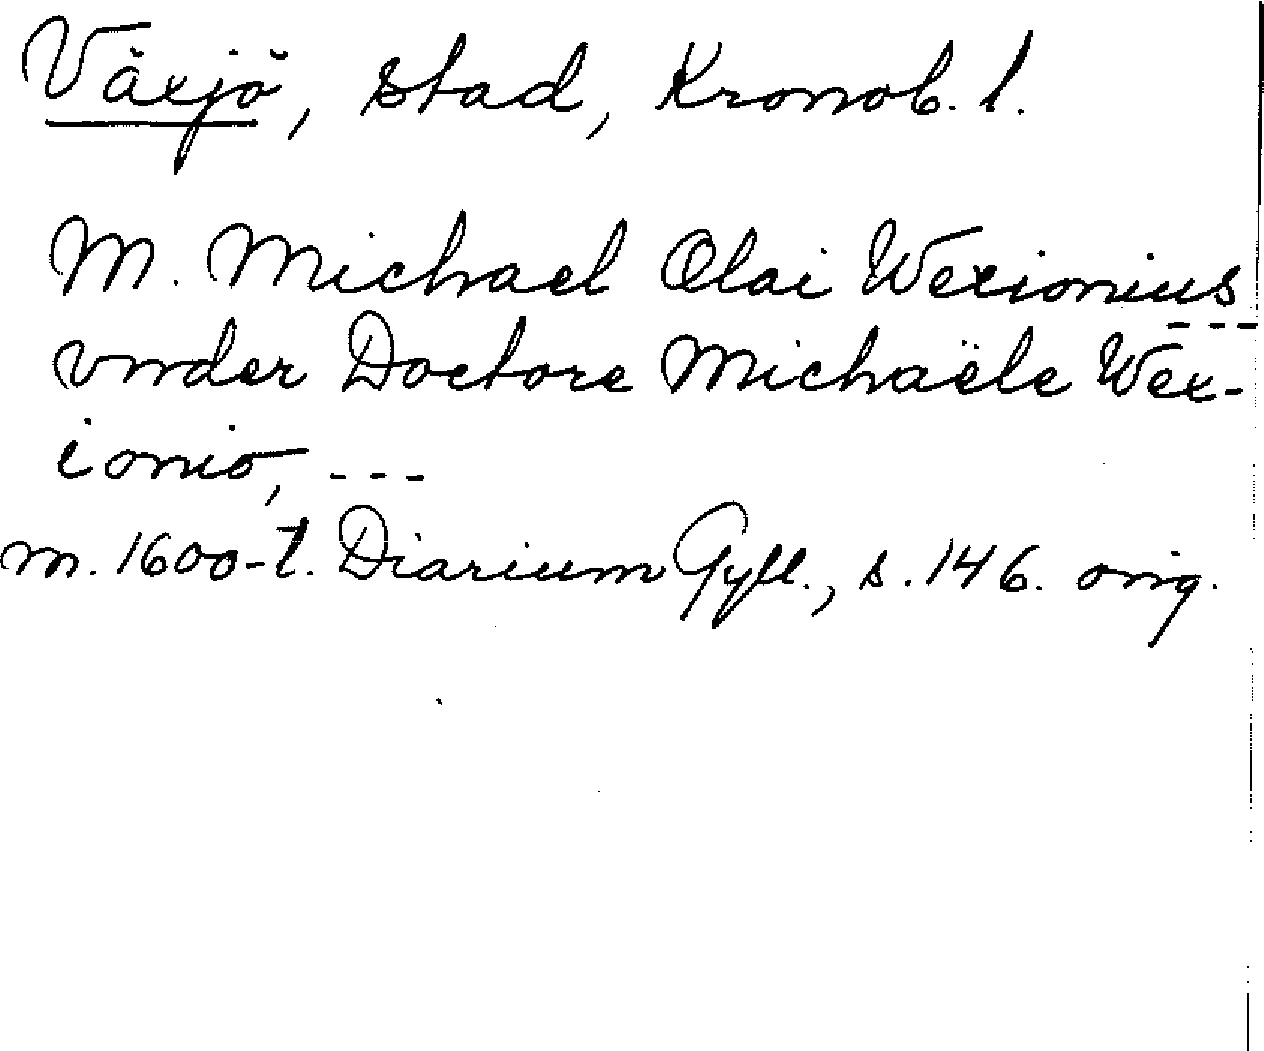 Växjö, stad, Kronob. l.
M. Michael Olai Wexionius
---
vnder Doctore Michaële Wex-
ionio, ---
m. 1600-t. Diarium Gyll., s. 146. orig.